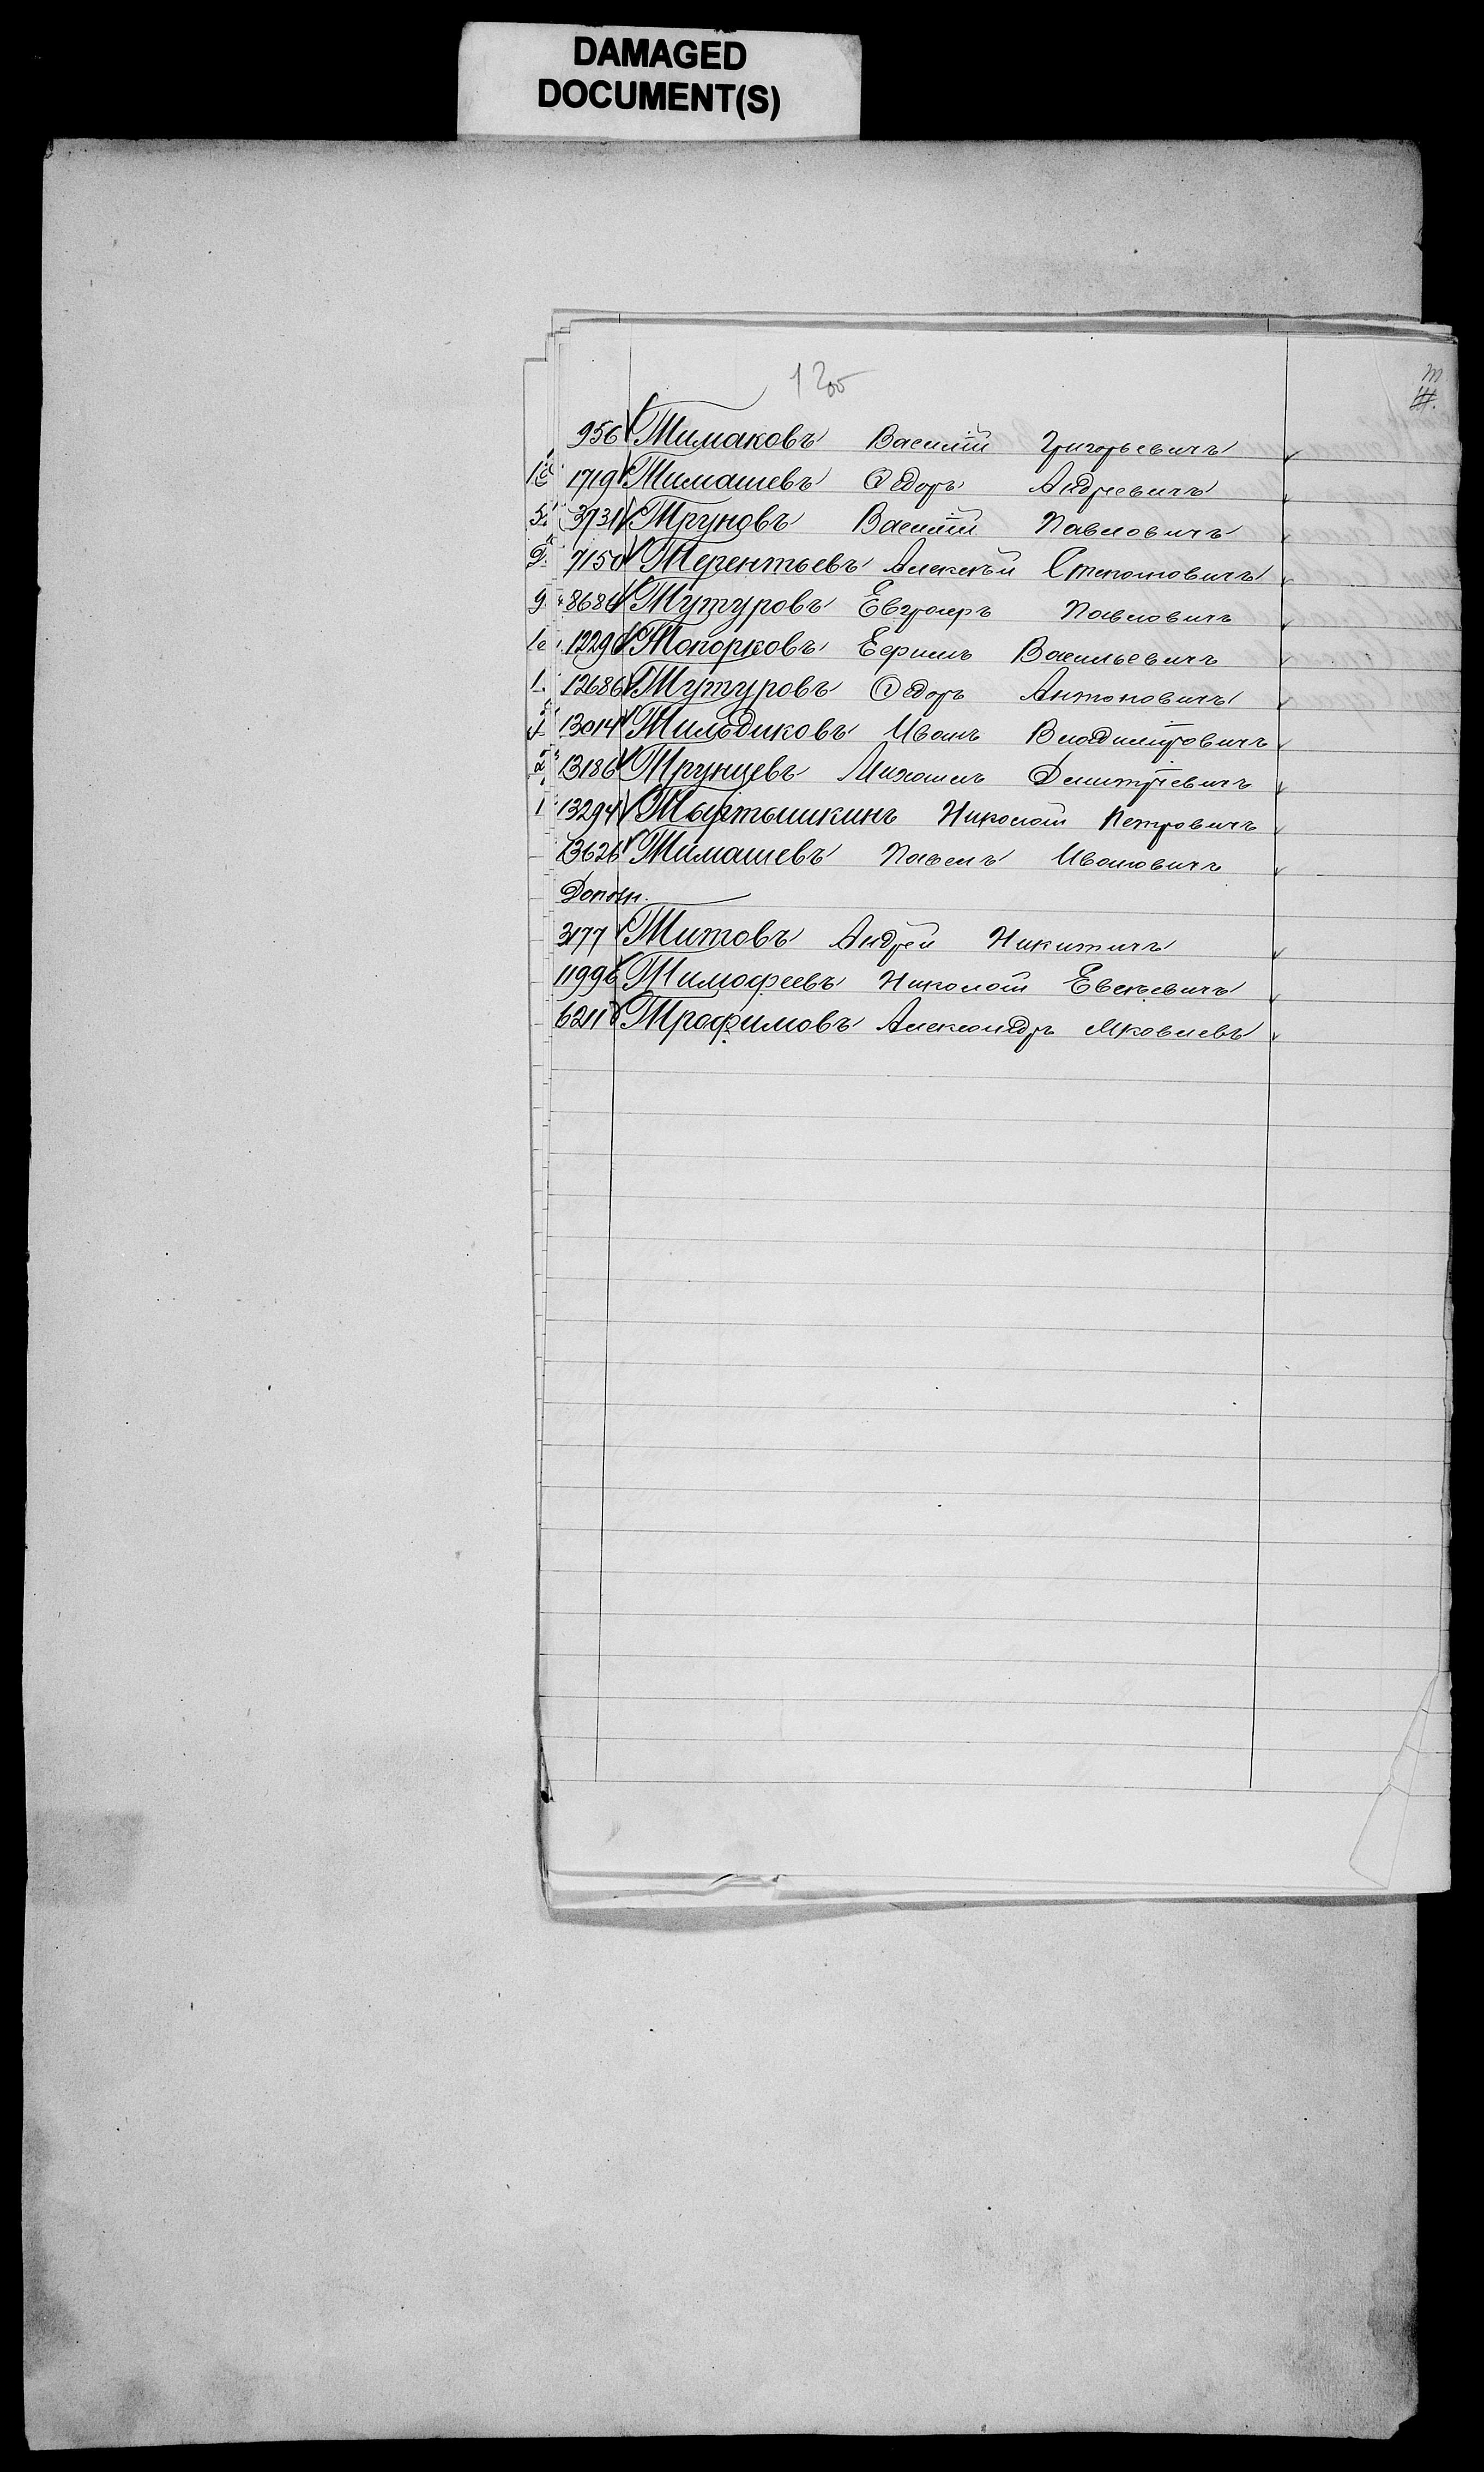 DAMAGED
DOCUMENT(S)
956 Тимаковъ Василій Григорьевичъ
1719 Тимашевъ Ѳедоръ Андреевичъ
3731 Труновъ Василій Павловичъ
7150 Терентьевъ Алексѣй Степановичъ
8686 Тутуровъ Евграфъ Павловичъ
12290 Топорковъ Ефимъ Васильевичъ
12686 Тутуровъ Ѳедоръ Антоновичъ
13014 Тильдиковъ Иванъ Владиміровичъ
13186 Трунцевъ Михаилъ Дмитріевичъ
13294 Тартышкинъ Николай Петровичъ
13626 Тимашевъ Павелъ Ивановичъ
Дополн.
3177 Титовъ Андрей Никитичъ
11996 Тимофеевъ Николай Евсѣевичъ
6211 Трофимовъ Александръ Яковлевъ